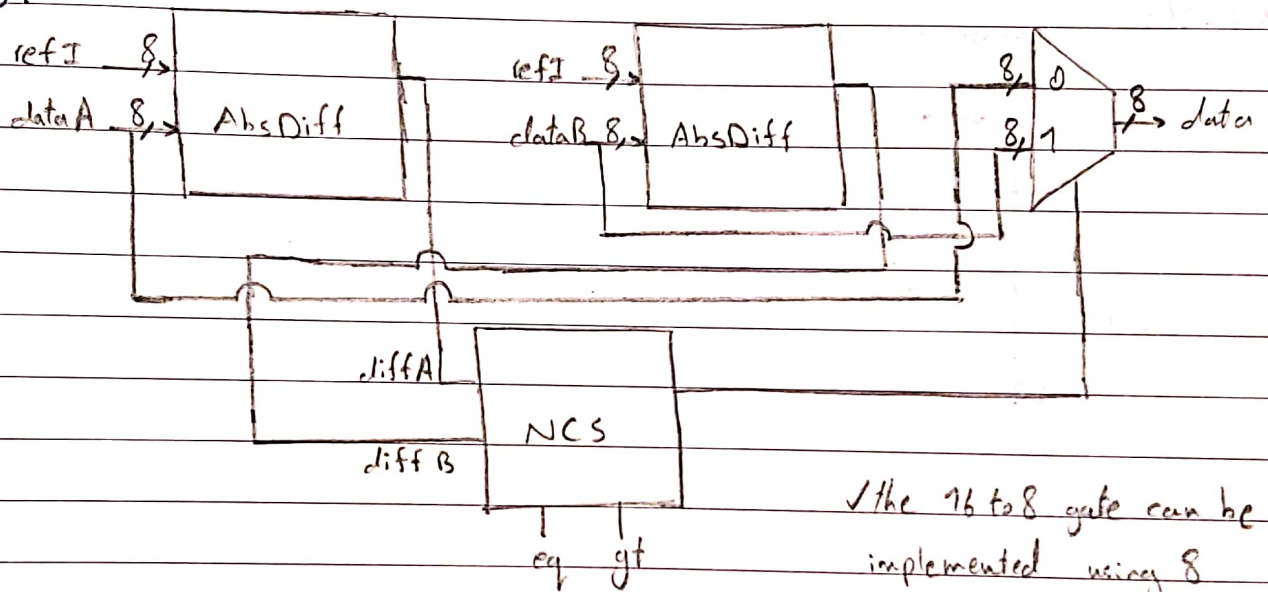 refI 8
dataA 8
AbsDiff
refI 8
dataB 8
AbsDiff
8 0
8 1
8 data
diffA
diff B
NCS
eq gt
√the 16 to 8 gate can be
implemented using 8